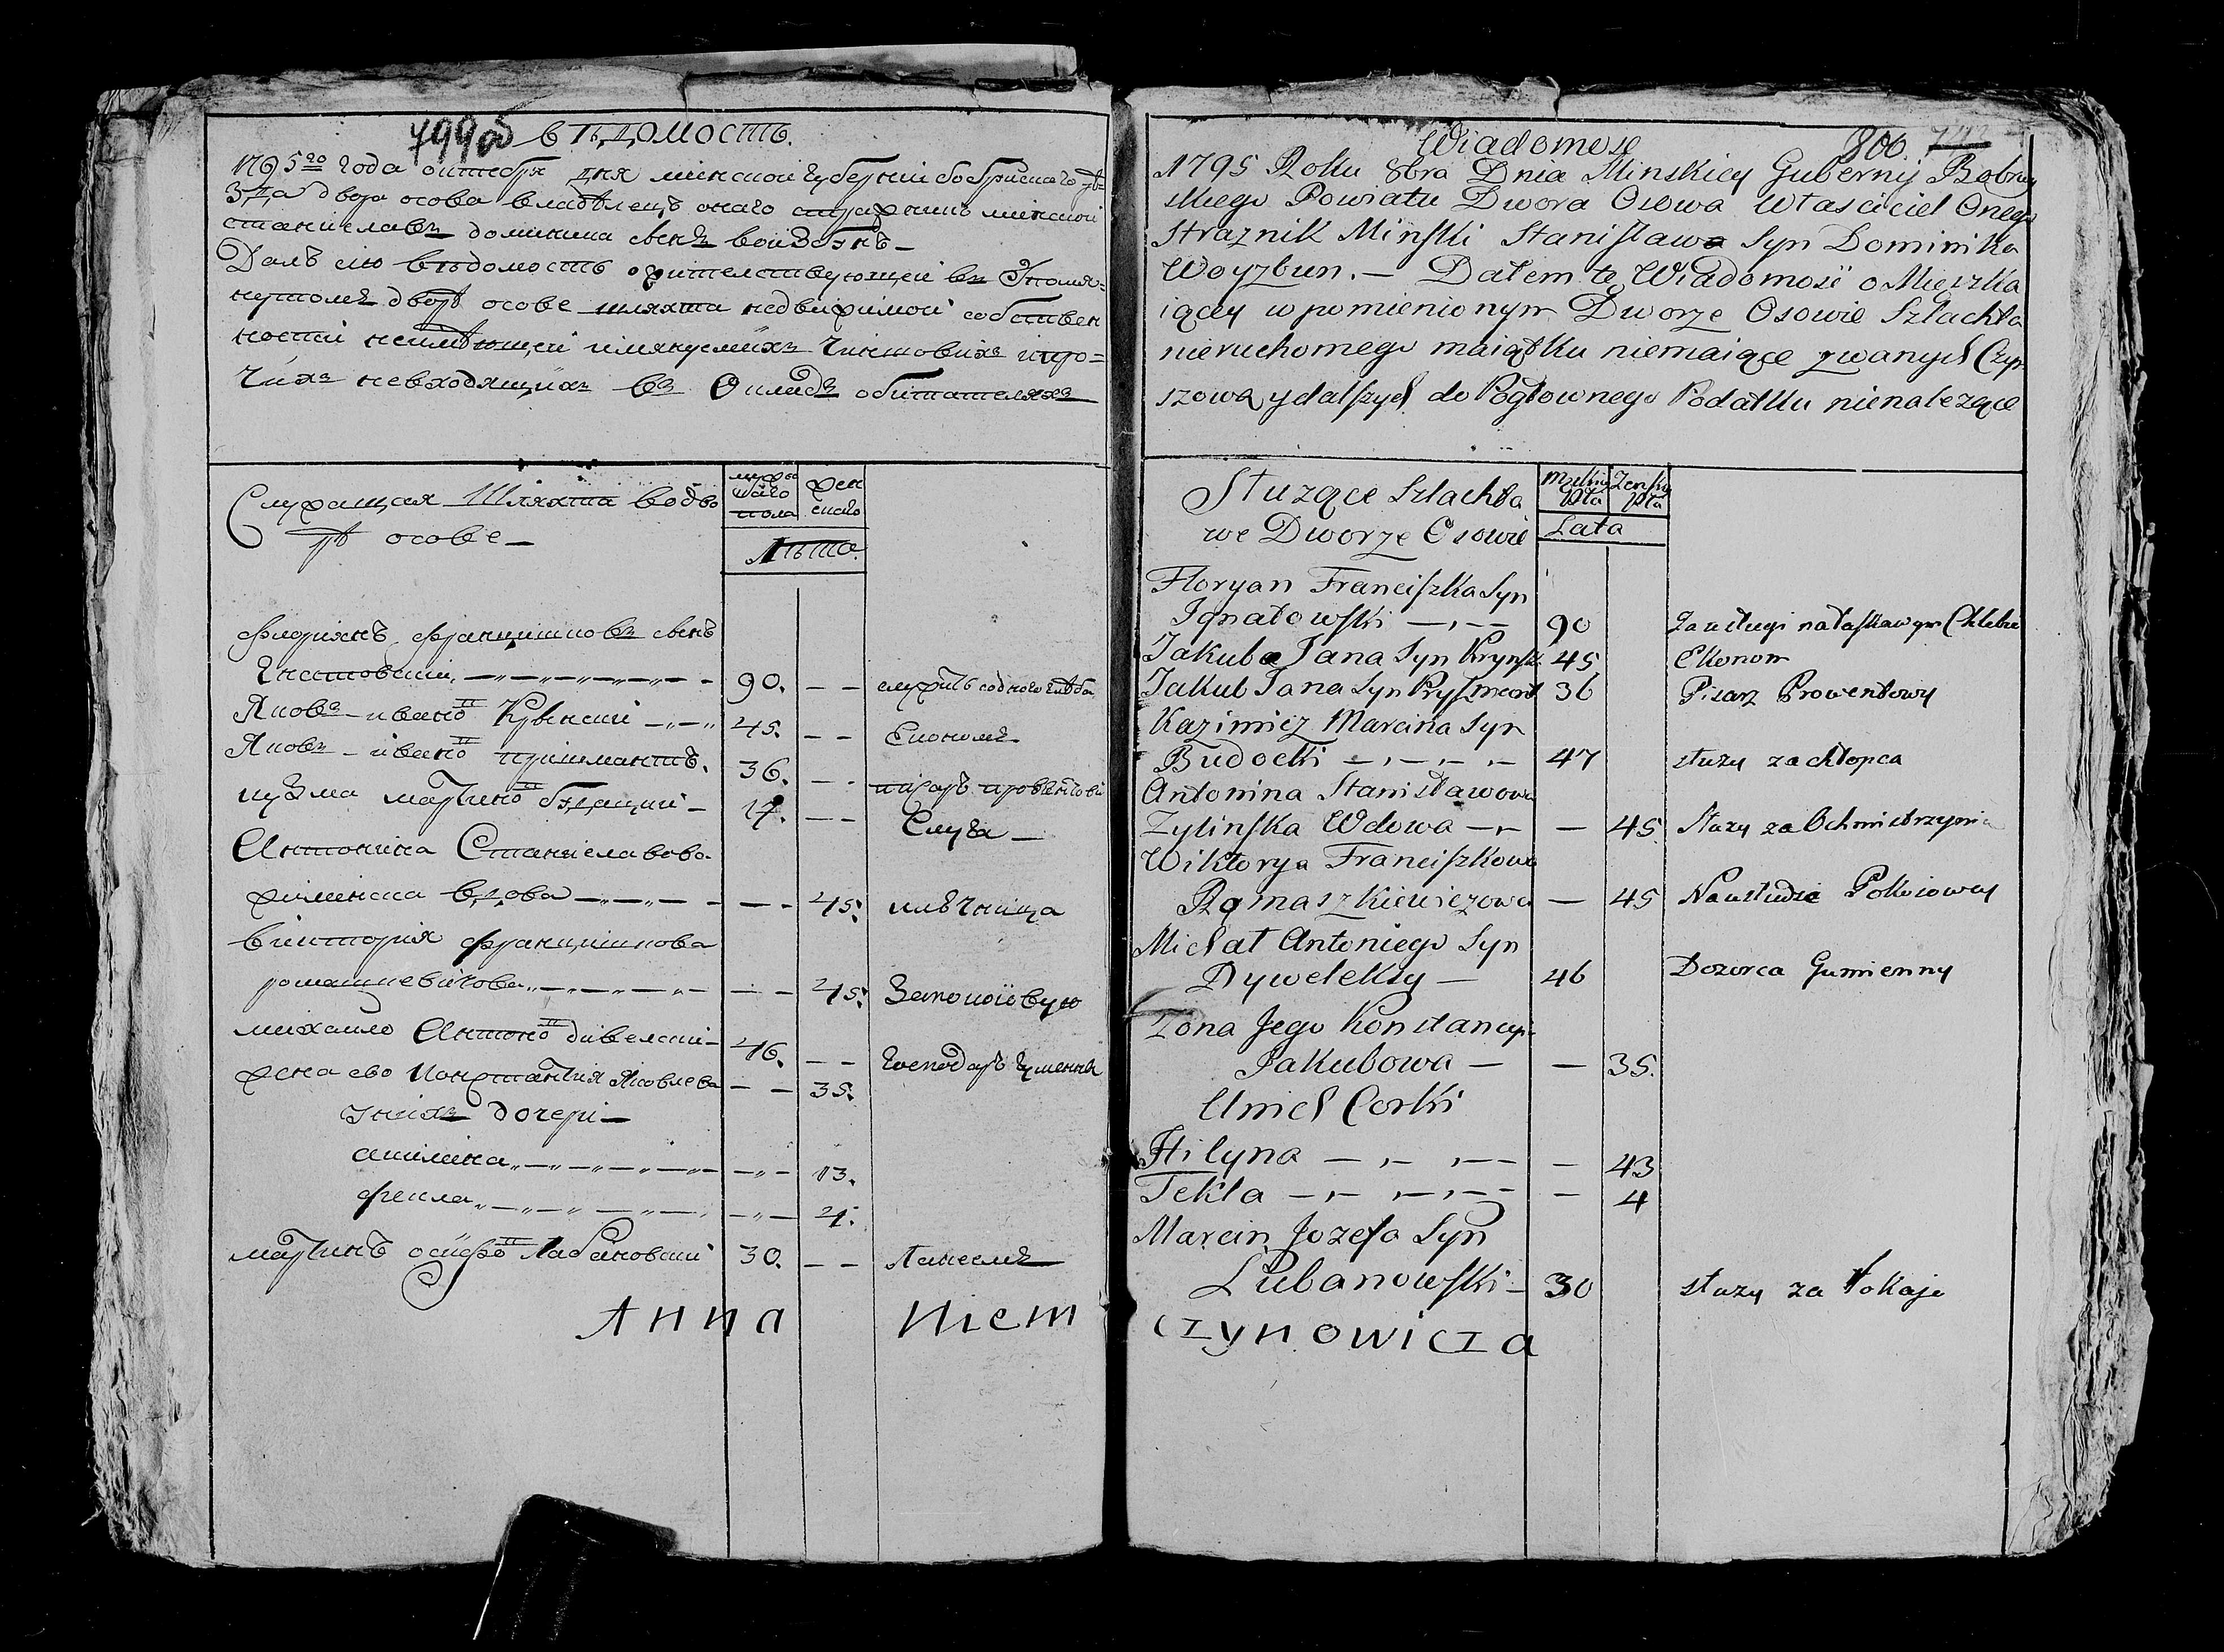 799об
вѣдомость.
1795го года октебря дня минской губернии бобруйскаго уѣ=
зда двора осова владѣлецъ онаго стражникъ минский
станиславъ доминика сынъ войзбунъ—
Далъ сию вѣдомость о жителствующей въ упомя=
нутомъ дворѣ осове шляхта недвижимой собствен
ности неимѣющей имянуемихъ чиншовихъ и про=
чихъ невходящихъ въ окладъ обитателяхъ
Служащая шляхта во дво
рѣ осове—
мужес
скаго
пола
жен
скаго
Лѣта.
флориянъ францишковъ сынъ
Игнатовский 90. — — служитъ с одного хлѣба
Яковъ ивано Крынский 45. — — Економъ
Яковъ ивано пришмантъ. 36. — — писаръ провентовий
кузма мартино будацкий — 17. — — Слуга —
Антонина Станиславова
жилинска вдова — — — 45. ключница
викторія францишкова
ромашкевичова — — — 45. Запокоювую
михайло Антоно дивелский — 46. — — Господаръ гуменны
жена ево констанция Яковлева — — 35.
у нихъ дочери —
акилина — — 13.
фекла — — 4.
мартинъ осифо Лабановский 30. — — Лакеемъ
Анна Niem
Wiadomosc
800. 742
1795 Roku 8bra Dnia Minskiey Guberny Bobruy
skiego Powiatu Dwora Osowa Własciciel Onego
Straznik Minski Stanisława Syn Dominika
Woyzbun. — Dałem tę Wiadomość o Mieszka
iącey w pomienionym Dworze Osowie Szlachta
nieruchomego maiątku niemaiące zwanych Czyn
szowa y dalszych do Pogłownego Podatku nienalezące
Służące Szlachta
we Dworze Osowie
Męski
Płci
Zensky
Płci
Lata
Floryan Franciszka Syn
Ignatowski — 90 Za usługi na łaskawym Chlebie
Jakuba Jana Syn Krynski 45 Ekonom
Jakub Jana Syn Pryszmont 36 Pisarz Prowentowy
Kazimiez Marcina Syn
Budocki — 47 słuzy za chłopca
Antonina Stanisławowa
Zylinska Wdowa — — 45. Słuzy za Ochmistrzynia
Wiktorya Franciszkowa
Romaszkiewiczowa — 45 Na usłudze Pokoiowey
Michał Antoniego Syn
Dyweleksy — 46 Dozorca Gumienny
Zona Jego Konstancyi
Jakubowa — — 35.
U nich Corki
Akilyna — — 43
Tekla — — 4
Marcin Jozefa Syn
Lubanowski — 30 słuzy za Lokaje
czynowicza